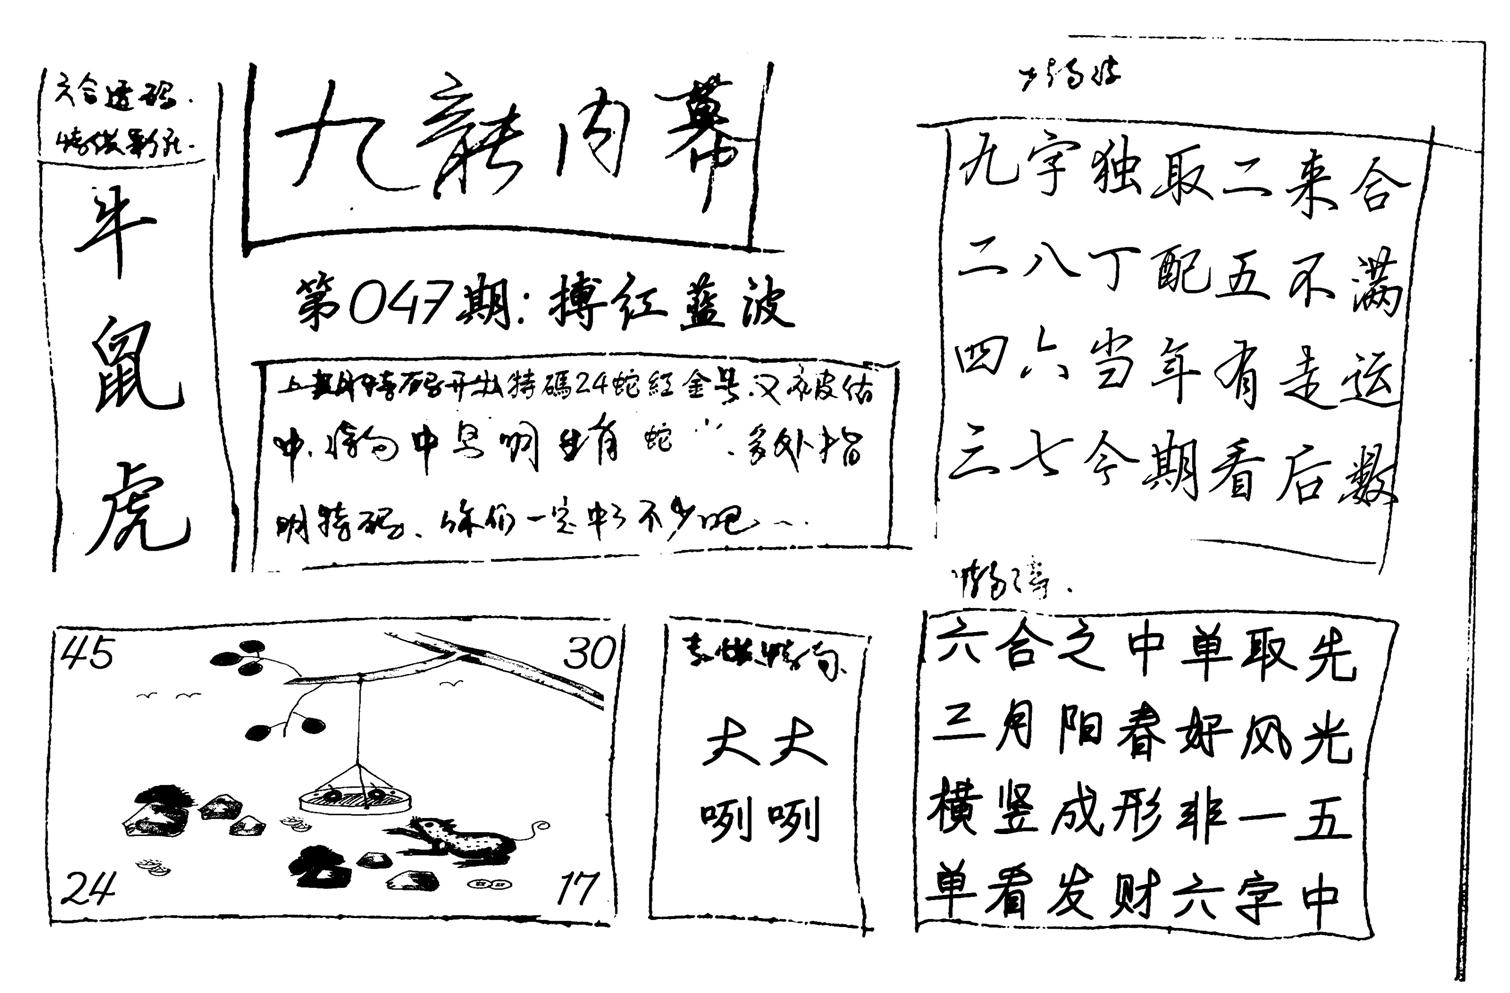 六合透码.
牛
鼠
虎
九龍内幕
第047期:搏红蓝波
上期特码开出特碼24蛇紅金号.又被估
中.特句中早明生肖蛇.多处指
明特码、你们一定中了不少吧
九字独取二来合
二八丁配五不满
四六当年有走运
三七今期看后数
六合之中单取先
三月阳春好风光
横竖成形非一五
单看发财六字中
大大
咧咧
45
30
24
17